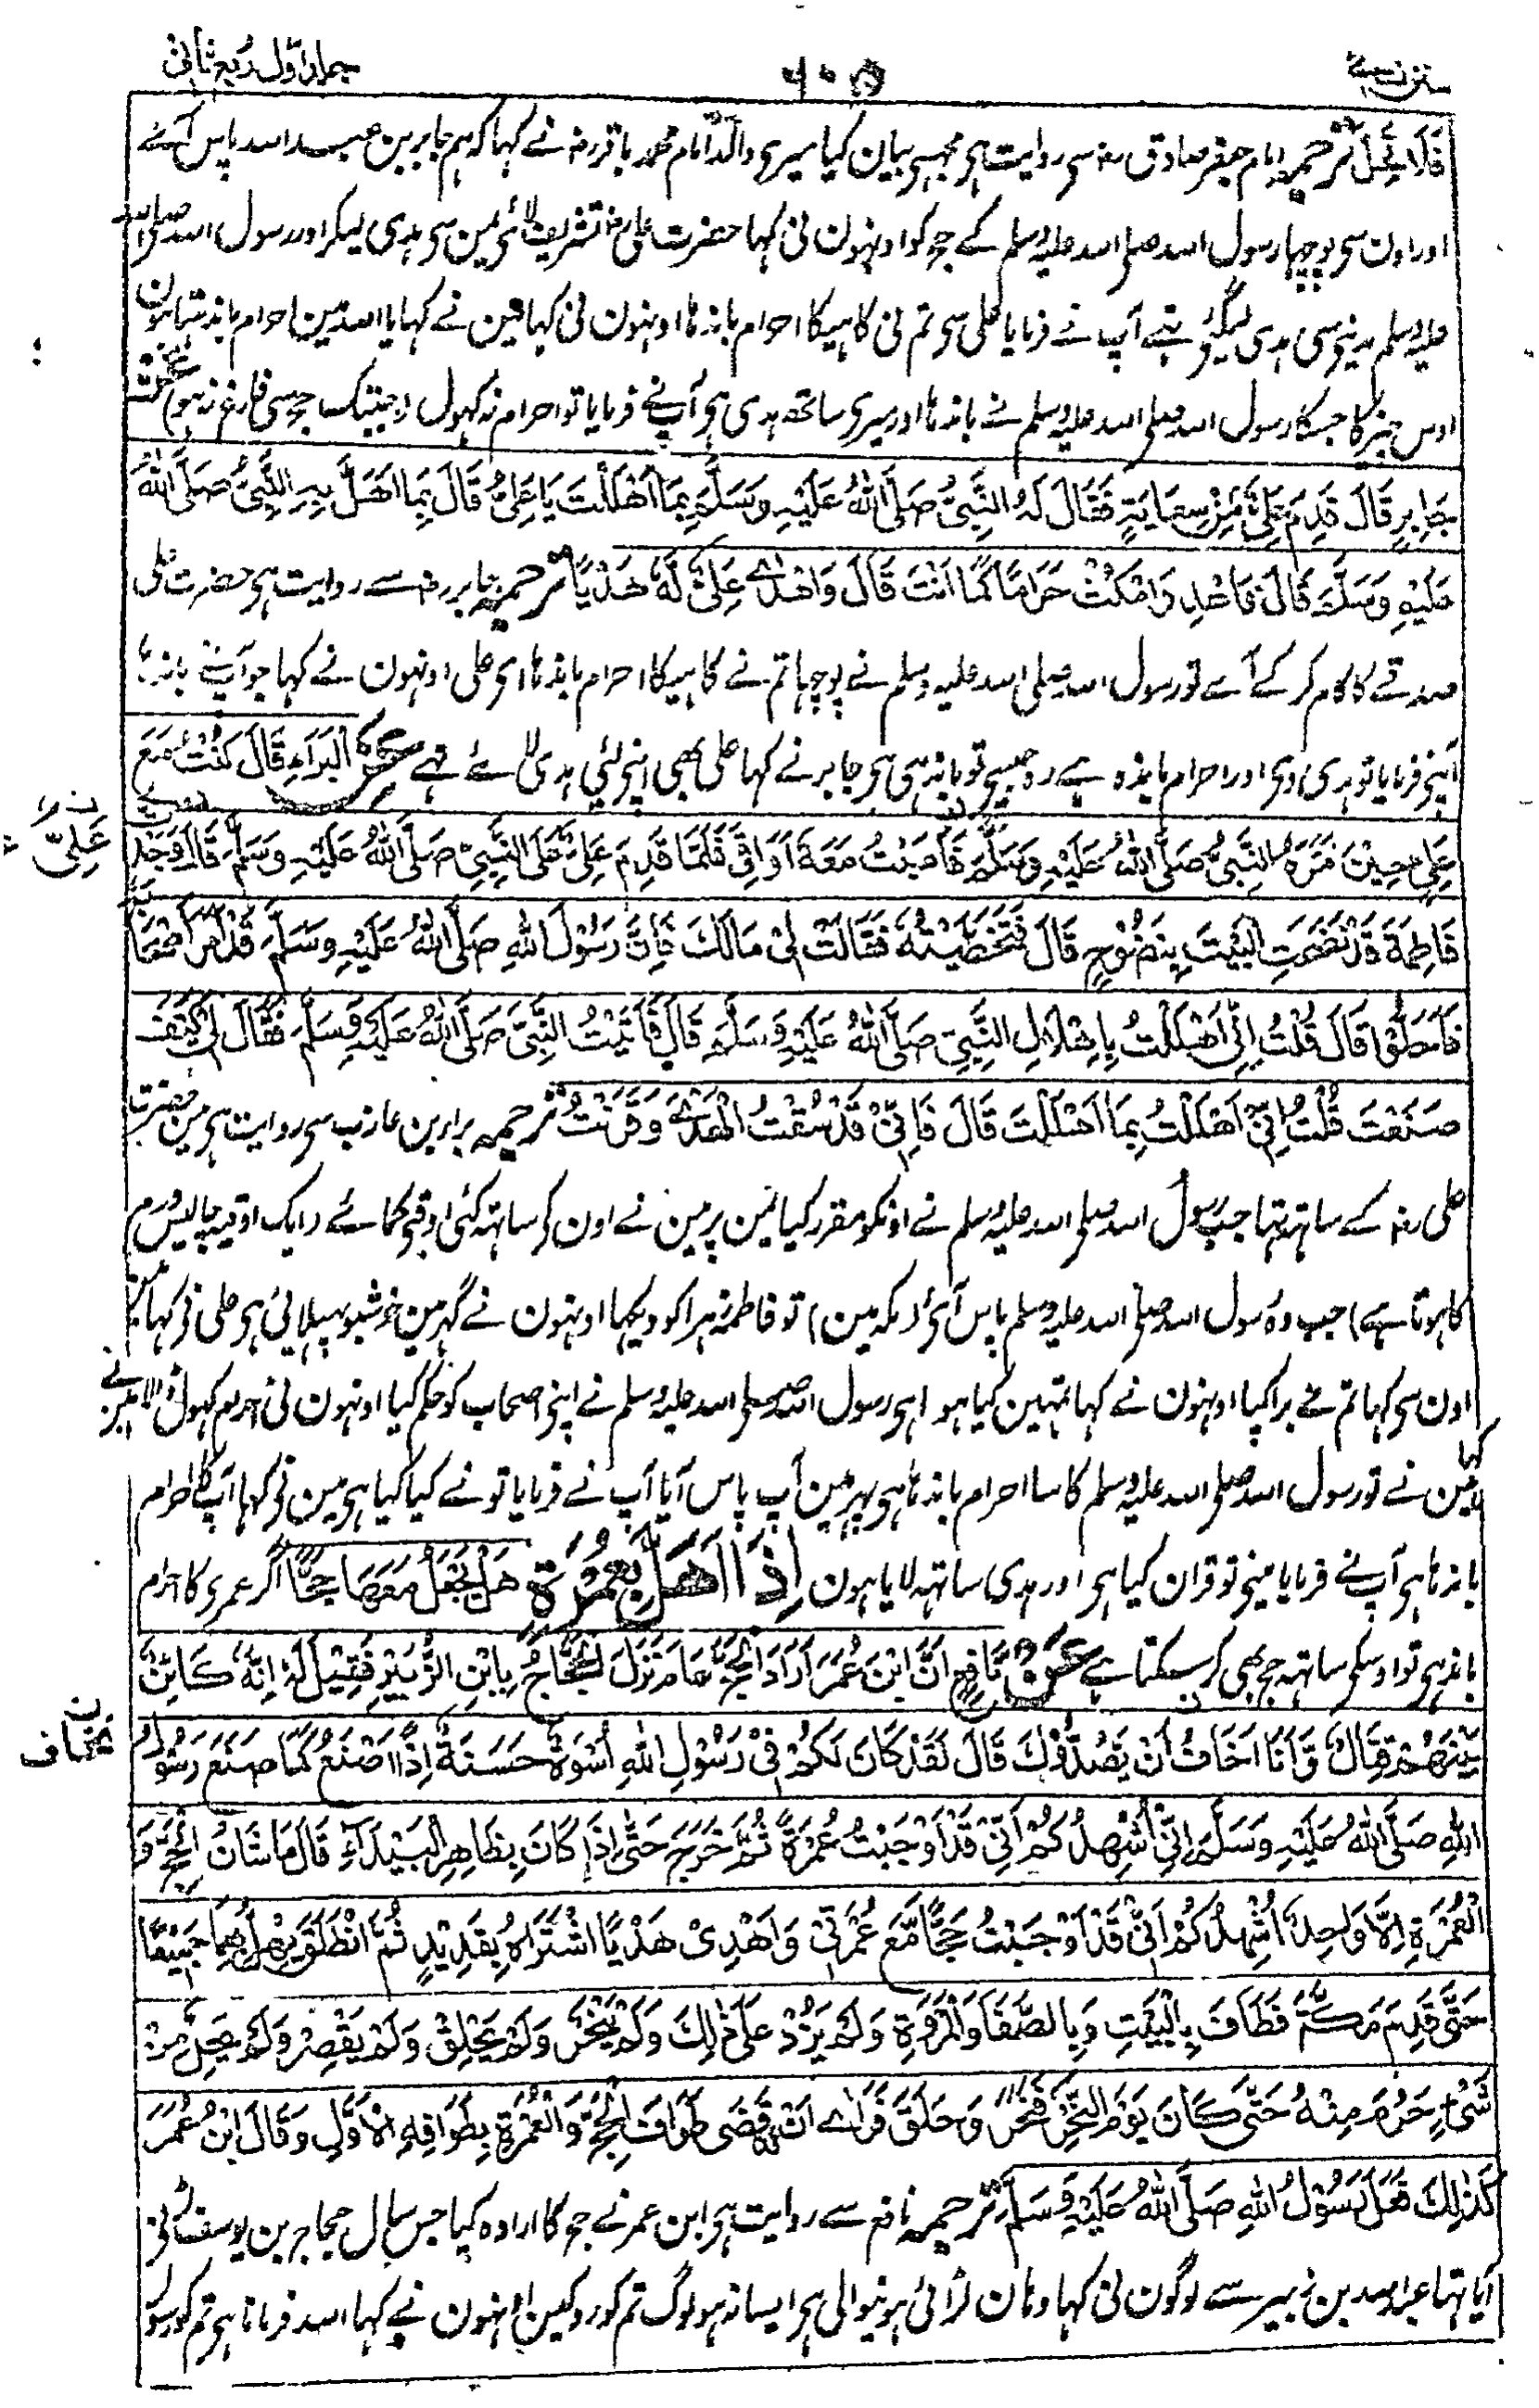 سنن نسائی
۶۰۵
جلد اول ربع ثانی
فَلَا تَحِلَّ ترجمہ امام جعفر صادق رض سی روایت ہی مجہسی بیان کیا میری والد امام محمد باقر رض نے کہا کہ ہم جابر بن عبد اللہ پاس آئے
اور اون سی پوچہا رسول اللہ صلی اللہ علیہ وسلم کے حج کو اونہون نی کہا حضرت علی رض تشریف لائی یمن سی ہدی لیکر اور رسول اللہ صلی اللہ
علیہ وسلم مدینی سی ہدی لیگئی تہے آپ نے فرمایا علی سی تم نی کاہیکا احرام باندہا اونہون نی کہا مین نے کہا یا اللہ مین احرام باندہتا ہون
اوس چیز کا جسکا رسول اللہ صلی اللہ علیہ وسلم نے باندہا اور میری ساتھ ہدی ہی آپ نے فرمایا تو احرام نہ کہول (جبتک حج سی فارغ نہ ہو) عَنْ
جَابِرٍ قَالَ قَدِمَ عَلِيٌّ مِّنْ سِعَايَتِهٖ فَقَالَ لَهُ النَّبِيُّ صَلَّى اللّٰهُ عَلَيْهِ وَسَلَّمَ بِمَا اَهْلَلْتَ يَا عَلِيُّ قَالَ بِمَا اَهَلَّ بِهِ النَّبِيُّ صَلَّى اللّٰهُ
عَلَيْهِ وَسَلَّمَ قَالَ فَاهْدِ وَامْكُثْ حَرَامًا كَمَا اَنْتَ قَالَ وَاهْدٰے عَلِيٌّ لَهٗ هَدْيًا ترجمہ جابر رض سے روایت ہی حضرت علی
صدقے کا کام کر کے آے تو رسول اللہ صلی اللہ علیہ وسلم نے پوچہا تم نے کاہیکا احرام باندہا ای علی اونہون نے کہا جو آپنے باندہا
آپنی فرمایا تو ہدی دی اور احرام باندہ ہے رہ جیسی تو باندہی ہی جابر نے کہا علی بھی اپنی لئی ہدی لائے تہے عَنِ الْبَرَاءِ قَالَ كُنْتُ مَعَ
عَلِيٍّ حِيْنَ اَمَّرَهُ النَّبِيُّ صَلَّى اللّٰهُ عَلَيْهِ وَسَلَّمَ فَاَصَبْتُ مَعَهٗ اَوَاقِيَ فَلَمَّا قَدِمَ عَلِيٌّ عَلَى النَّبِيِّ صَلَّى اللّٰهُ عَلَيْهِ وَسَلَّمَ قَالَ وَجَدْتُ
عَلِيٌّ
فَاطِمَةَ قَدْ نَضَحَتِ الْبَيْتَ بِنَضُوْحٍ قَالَ فَتَخَطَّيْتُهٗ فَقَالَتْ لِيْ مَالَكَ فَاِنَّ رَسُوْلَ اللّٰهِ صَلَّى اللّٰهُ عَلَيْهِ وَسَلَّمَ قَدْ اَمَرَ اَصْحَابَهٗ
فَاَحَلُّوْا قَالَ قُلْتُ اِنِّيْ اَهْلَلْتُ بِاِهْلَالِ النَّبِيِّ صَلَّى اللّٰهُ عَلَيْهِ وَسَلَّمَ قَالَ فَاَتَيْتُ النَّبِيَّ صَلَّى اللّٰهُ عَلَيْهِ وَسَلَّمَ فَقَالَ لِيْ كَيْفَ
صَنَعْتَ قُلْتُ اِنِّيْ اَهْلَلْتُ بِمَا اَهْلَلْتَ قَالَ فَاِنِّيْ قَدْ سُقْتُ الْهَدْيَ وَقَرَنْتُ ترجمہ براء بن عازب سی روایت ہی مین حضرت
علی رض کے ساتہہ تہا جب رسول اللہ صلی اللہ علیہ وسلم نے اونکو مقرر کیا یمن پر مین نے اون کی ساتہہ کئی اوقیی کمائے (ایک اوقیہ چالیس درم
کا ہوتا ہے) جب وہ رسول اللہ صلی اللہ علیہ وسلم پاس آئی (مکہ مین) تو فاطمہ زہرا کو دیکہا اونہون نے گہر مین خوشبو پہیلائی ہی علی نی کہا مین نے
اون سی کہا تم نے برا کیا اونہون نے کہا تمہین کیا ہوا ہی رسول اللہ صلی اللہ علیہ وسلم نے اپنی اصحاب کو حکم کیا اونہون نی احرام کہول ڈالا مین نے
کہا مین نے تو رسول اللہ صلی اللہ علیہ وسلم کا سا احرام باندہا ہی پہر مین آپ پاس آیا آپ نے فرمایا تو نے کیا کیا ہی مین نی کہا آپ کا احرام
باندہا ہی آپ نے فرمایا مینی تو قران کیا ہی اور ہدی ساتہہ لایا ہون اِذَا اَهَلَّ بِعُمْرَةٍ هَلْ يَجْعَلُ مَعَهَا حَجًّا اگر عمری کا احرام
باندہی تو اوسکی ساتہہ حج بھی کر سکتا ہے عَنْ نَّافِعٍ اَنَّ ابْنَ عُمَرَ اَرَادَ الْحَجَّ عَامَ نَزَلَ الْحَجَّاجُ بِابْنِ الزُّبَيْرِ فَقِيْلَ لَهٗ اِنَّهٗ كَائِنٌ
بَيْنَهُمْ قِتَالٌ وَّاَنَا اَخَافُ اَنْ يَّصُدُّوْكَ قَالَ لَقَدْ كَانَ لَكُمْ فِيْ رَسُوْلِ اللّٰهِ اُسْوَةٌ حَسَنَةٌ اِذًا اَصْنَعُ كَمَا صَنَعَ رَسُوْلُ
نخاف
اللّٰهِ صَلَّى اللّٰهُ عَلَيْهِ وَسَلَّمَ اِنِّيْ اُشْهِدُكُمْ اَنِّيْ قَدْ اَوْجَبْتُ عُمْرَةً ثُمَّ خَرَجَ حَتّٰى اِذَا كَانَ بِظَاهِرِ الْبَيْدَاءِ قَالَ مَا شَانُ الْحَجِّ وَ
الْعُمْرَةِ اِلَّا وَاحِدٌ اُشْهِدُكُمْ اَنِّيْ قَدْ اَوْجَبْتُ حَجًّا مَّعَ عُمْرَتِيْ وَاَهْدٰى هَدْيًا اشْتَرَاهُ بِقُدَيْدٍ ثُمَّ انْطَلَقَ يُهِلُّ بِهِمَا جَمِيْعًا
حَتّٰى قَدِمَ مَكَّةَ فَطَافَ بِالْبَيْتِ وَبِالصَّفَا وَالْمَرْوَةِ وَلَمْ يَزِدْ عَلٰى ذٰلِكَ وَلَمْ يَنْحَرْ وَلَمْ يَحْلِقْ وَلَمْ يُقَصِّرْ وَلَمْ يَحِلَّ مِنْ
شَيْءٍ حَرُمَ مِنْهُ حَتّٰى كَانَ يَوْمُ النَّحْرِ فَنَحَرَ وَحَلَقَ فَرَاٰے اَنْ قَدْ قَضٰى طَوَافَ الْحَجِّ وَالْعُمْرَةِ بِطَوَافِهِ الْاَوَّلِ وَقَالَ ابْنُ عُمَرَ
كَذٰلِكَ فَعَلَ رَسُوْلُ اللّٰهِ صَلَّى اللّٰهُ عَلَيْهِ وَسَلَّمَ ترجمہ نافع سے روایت ہی ابن عمر نے حج کا ارادہ کیا جس سال حجاج بن یوسف لڑنی
آیا تہا عبد اللہ بن زبیر سے لوگون نی کہا وہان لڑائی ہونیوالی ہی ایسا نہ ہو لوگ تم کو روکین اونہون نے کہا اللہ فرماتا ہی تم کو رسول